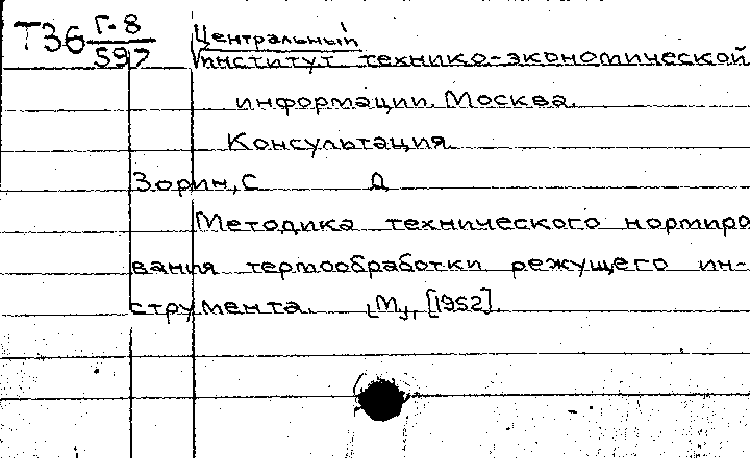 Т36 Г-8
597
Центральный
институт технико-экономической
информации. Москва.
Консультация
Зорин, С Д
Методика технического нормиро
вания термообработки режущего ин-
струмента. [М], [1952].